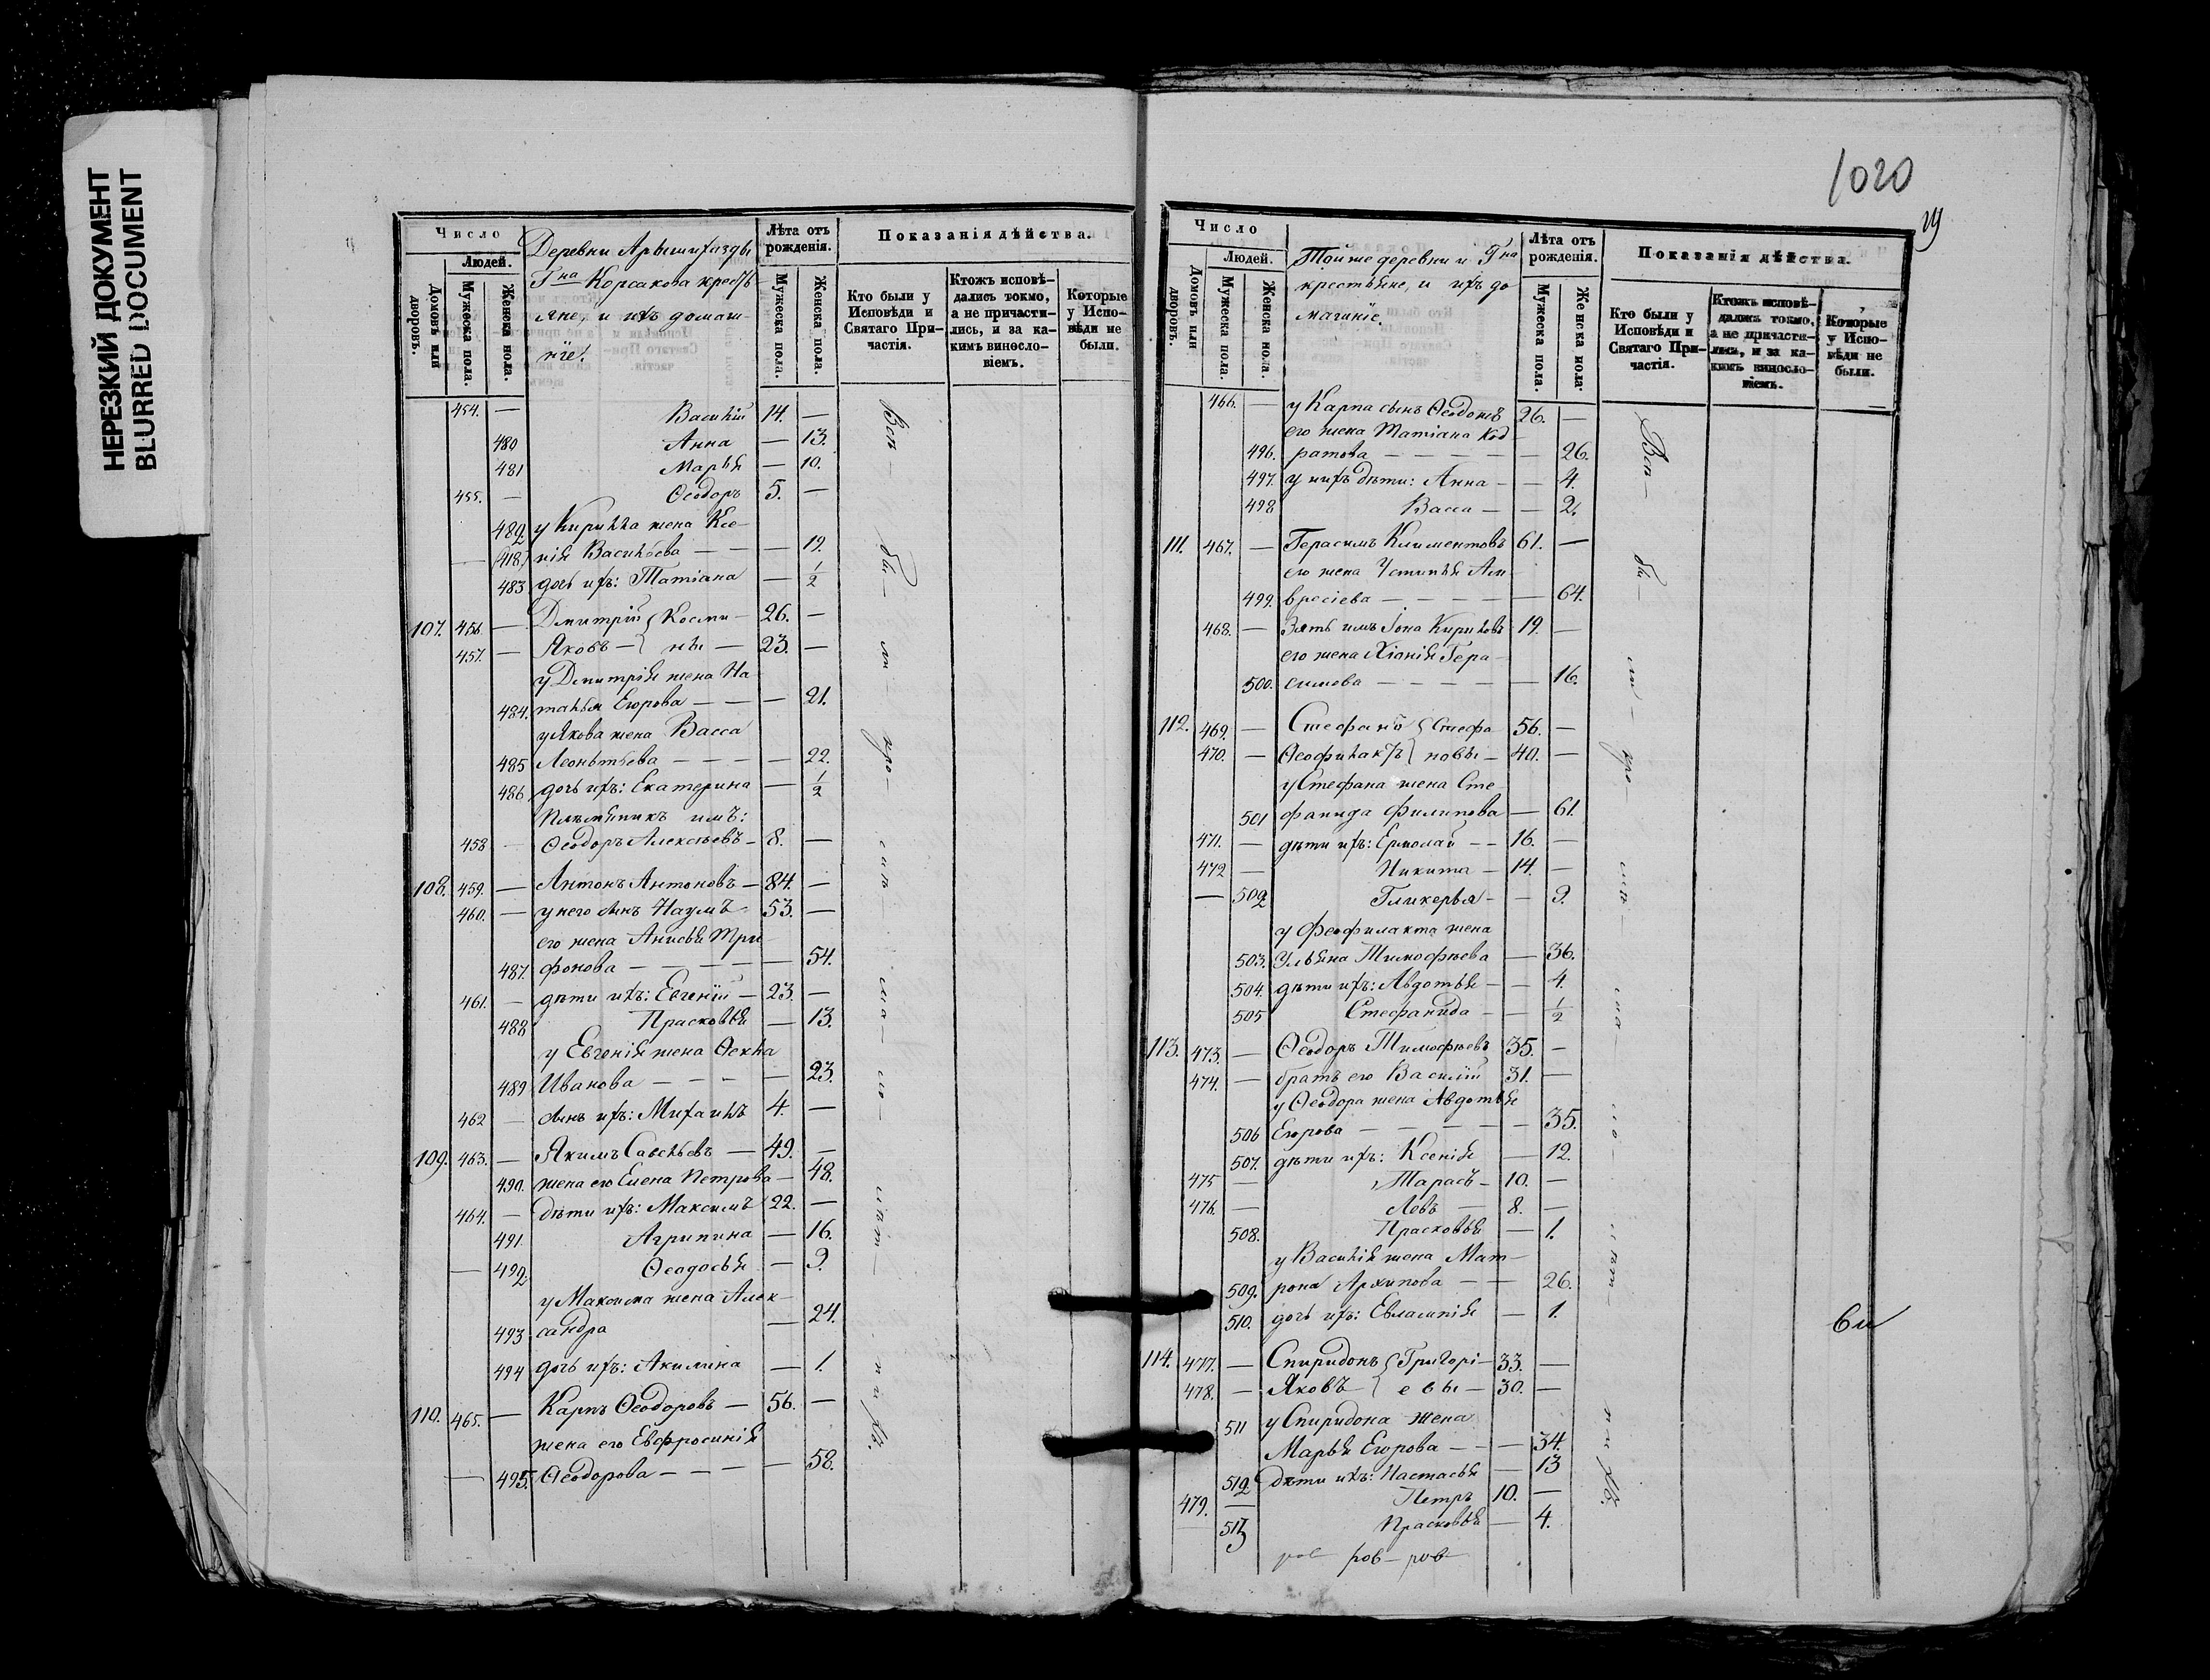 НЕРЕЗКИЙ ДОКУМЕНТ
BLURRED DOCUMENT
Число
Людей.
Домовъ или дворовъ.
Мужеска пола.
Женска пола.
Деревни
Гна Корсакова кресть-
яне, и ихъ домаш-
нїе.
Лѣта отъ рожденія.
Мужеска пола.
Женска пола.
Показанія дѣйства.
Кто были у Исповѣди и Святаго При-
частія.
Ктожъ исповѣ-
дались токмо,
а не причасти-
лись, и за ка-
кимъ виносло-
віемъ.
Которые
у Испо-
вѣди не
были.
454. — Василій 14. —
480 Анна — 13.
481 Марья — 10.
455. — Ѳеодоръ 5. —
482 у Кирилла жена Ксе-
(418) нія Васильева — — — 19.
483 дочь ихъ: Татіана — 1/2
107. 456 — Дмитрій Косми- 26. —
457. — Яковъ — ны — 23. —
у Дмитрія жена На
484. талья Егорова — — — 21.
у Якова жена Васса
485 Леонтьева — — — — 22.
486 дочь ихъ: Екатерина — 1/2
Племянникъ имъ:
458 — Ѳеодоръ Алексѣевъ — 8. —
108. 459. — Антонъ Антоновъ — 84. —
460. — у него сынъ Наумъ 53. —
его жена Анисья Три-
487. фонова — — — — — 54.
461. — дѣти ихъ: Евгеній — 23. —
488 Прасковья — 13.
у Евгенія жена Ѳекла
489 Иванова — — — — 23.
462 — сынъ ихъ: Михаилъ 4. —
109. 463. — Якимъ Савельевъ — 49. —
490. жена его Елена Петрова — 48.
464. — дѣти ихъ: Максимъ 22. —
491. Агрипина — 16.
— 492 Ѳеодосья — 9.
у Максима жена Алек-
493 сандра — 24.
494 дочь ихъ: Акилина — 1.
110. 465. — Карпъ Ѳеодоровъ — 56. —
жена его Евфросинія
— 495. Ѳеодорова — — — — 58.
Всѣ — бы — ли —
1020
Число
Людей.
Домовъ или дворовъ.
Мужеска пола.
Женска пола.
Той же деревни и Гна
крестьяне, и ихъ до
машніе.
Лѣта отъ рожденія.
Мужеска пола.
Женска пола.
Показанія дѣйства.
Кто были у Исповѣди и Святаго При-
частія.
Ктожъ исповѣ-
дались токмо,
а не причасти-
лись, и за ка-
кимъ виносло-
віемъ.
Которые
у Испо-
вѣди не
были.
466. — у Карпа сынъ 26. —
его жена Татіана Код-
496. ратова — — — — — 26.
497. у нихъ дѣти: Анна — — 4.
498 Васса — — 2.
111. 467. — Герасимъ Климентовъ 61. —
его жена Устинья Ам-
499. вросіева — — — — — 64.
468. — Зять имъ Іона Кириловъ 19. —
его жена Хіонія Гера-
500. симова — — — — — 16.
112. 469. — Стефанъ Стефа 56. —
470. — Ѳеофилактъ новы — 40. —
у Стефана жена Сте-
501 фанида Филипова — 61.
471. — дѣти ихъ: Ермолай — — 16. —
472 — Никита — 14. —
— 502 Гликерья — — 9.
у Феофилакта жена
503. Ульяна Тимофѣева — 36.
504. дѣти ихъ: Авдотья — — 4.
505 Стефанида — — 1/2
113. 473. — Ѳеодоръ Тимофѣевъ 35. —
474. — братъ его Василій 31. —
у Ѳеодора жена Авдотья
506 Егорова — — — — — 35.
507. дѣти ихъ: Ксенія — 12.
475 — Тарасъ — 10. —
476. — Левъ — 8. —
508. Прасковья — 1.
у Василія жена Мат-
509. рона Архипова — — 26.
510. дочь ихъ: Евлампія — 1.
114. 477. — Спиридонъ Григорі- 33. —
478. — Яковъ евы — 30. —
511 у Спиридона жена
Марья Егорова — — — 34.
512 дѣти ихъ: Настасья — 13
479. — Петръ 10. —
513 Прасковья — 4.
Всѣ — бы — ли —